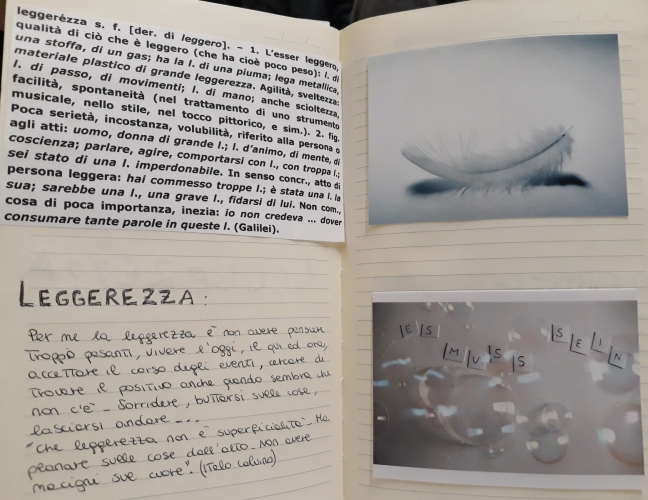 leggerézza s. f. [der. di leggero]. – 1. L'esser leggero,
qualità di ciò che è leggero (che ha cioè poco peso): l. di
una stoffa, di un gas; ha la l. di una piuma; lega metallica,
materiale plastico di grande leggerezza. Agilità, sveltezza:
l. di passo, di movimenti; l. di mano; anche scioltezza,
facilità, spontaneità (nel trattamento di uno strumento
musicale, nello stile, nel tocco pittorico, e sim.). 2. fig.
Poca serietà, incostanza, volubilità, riferito alla persona o
agli atti: uomo, donna di grande l.; l. d'animo, di mente, di
coscienza; parlare, agire, comportarsi con l., con troppa l.;
sei stato di una l. imperdonabile. In senso concr., atto di
persona leggera: hai commesso troppe l.; è stata una l. la
sua; sarebbe una l., una grave l., fidarsi di lui. Non com.,
cosa di poca importanza, inezia: io non credeva ... dover
consumare tante parole in queste l. (Galilei).
LEGGEREZZA:
Per me la leggerezza è non avere pensieri
troppo pesanti, vivere l'oggi, il qui ed ora,
accettare il corso degli eventi, cercare di
trovare il positivo anche quando sembra che
non c'è - Sorridere, buttarsi sulle cose,
lasciarsi andare ...
"Che leggerezza non è superficialità - Ma
planare sulle cose dall'alto - Non avere
macigni sul cuore". (Italo Calvino)
ES
MUSS
SEIN